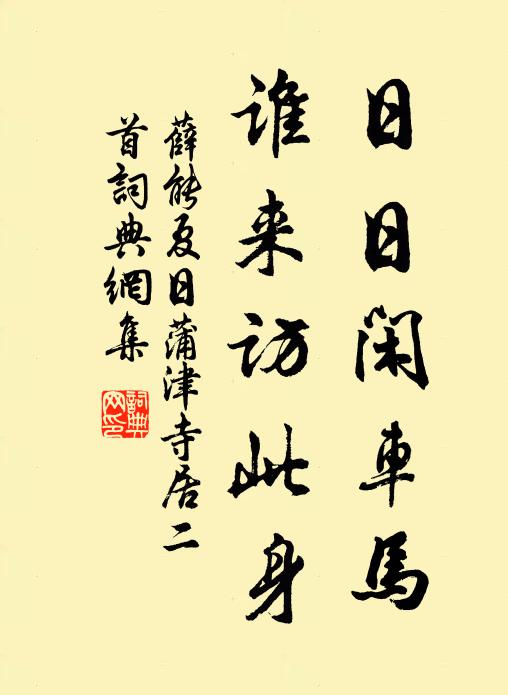 日日闲車馬
谁来访此身
薛能夏日蒲津寺居二
首詞典網集
詞典
网印